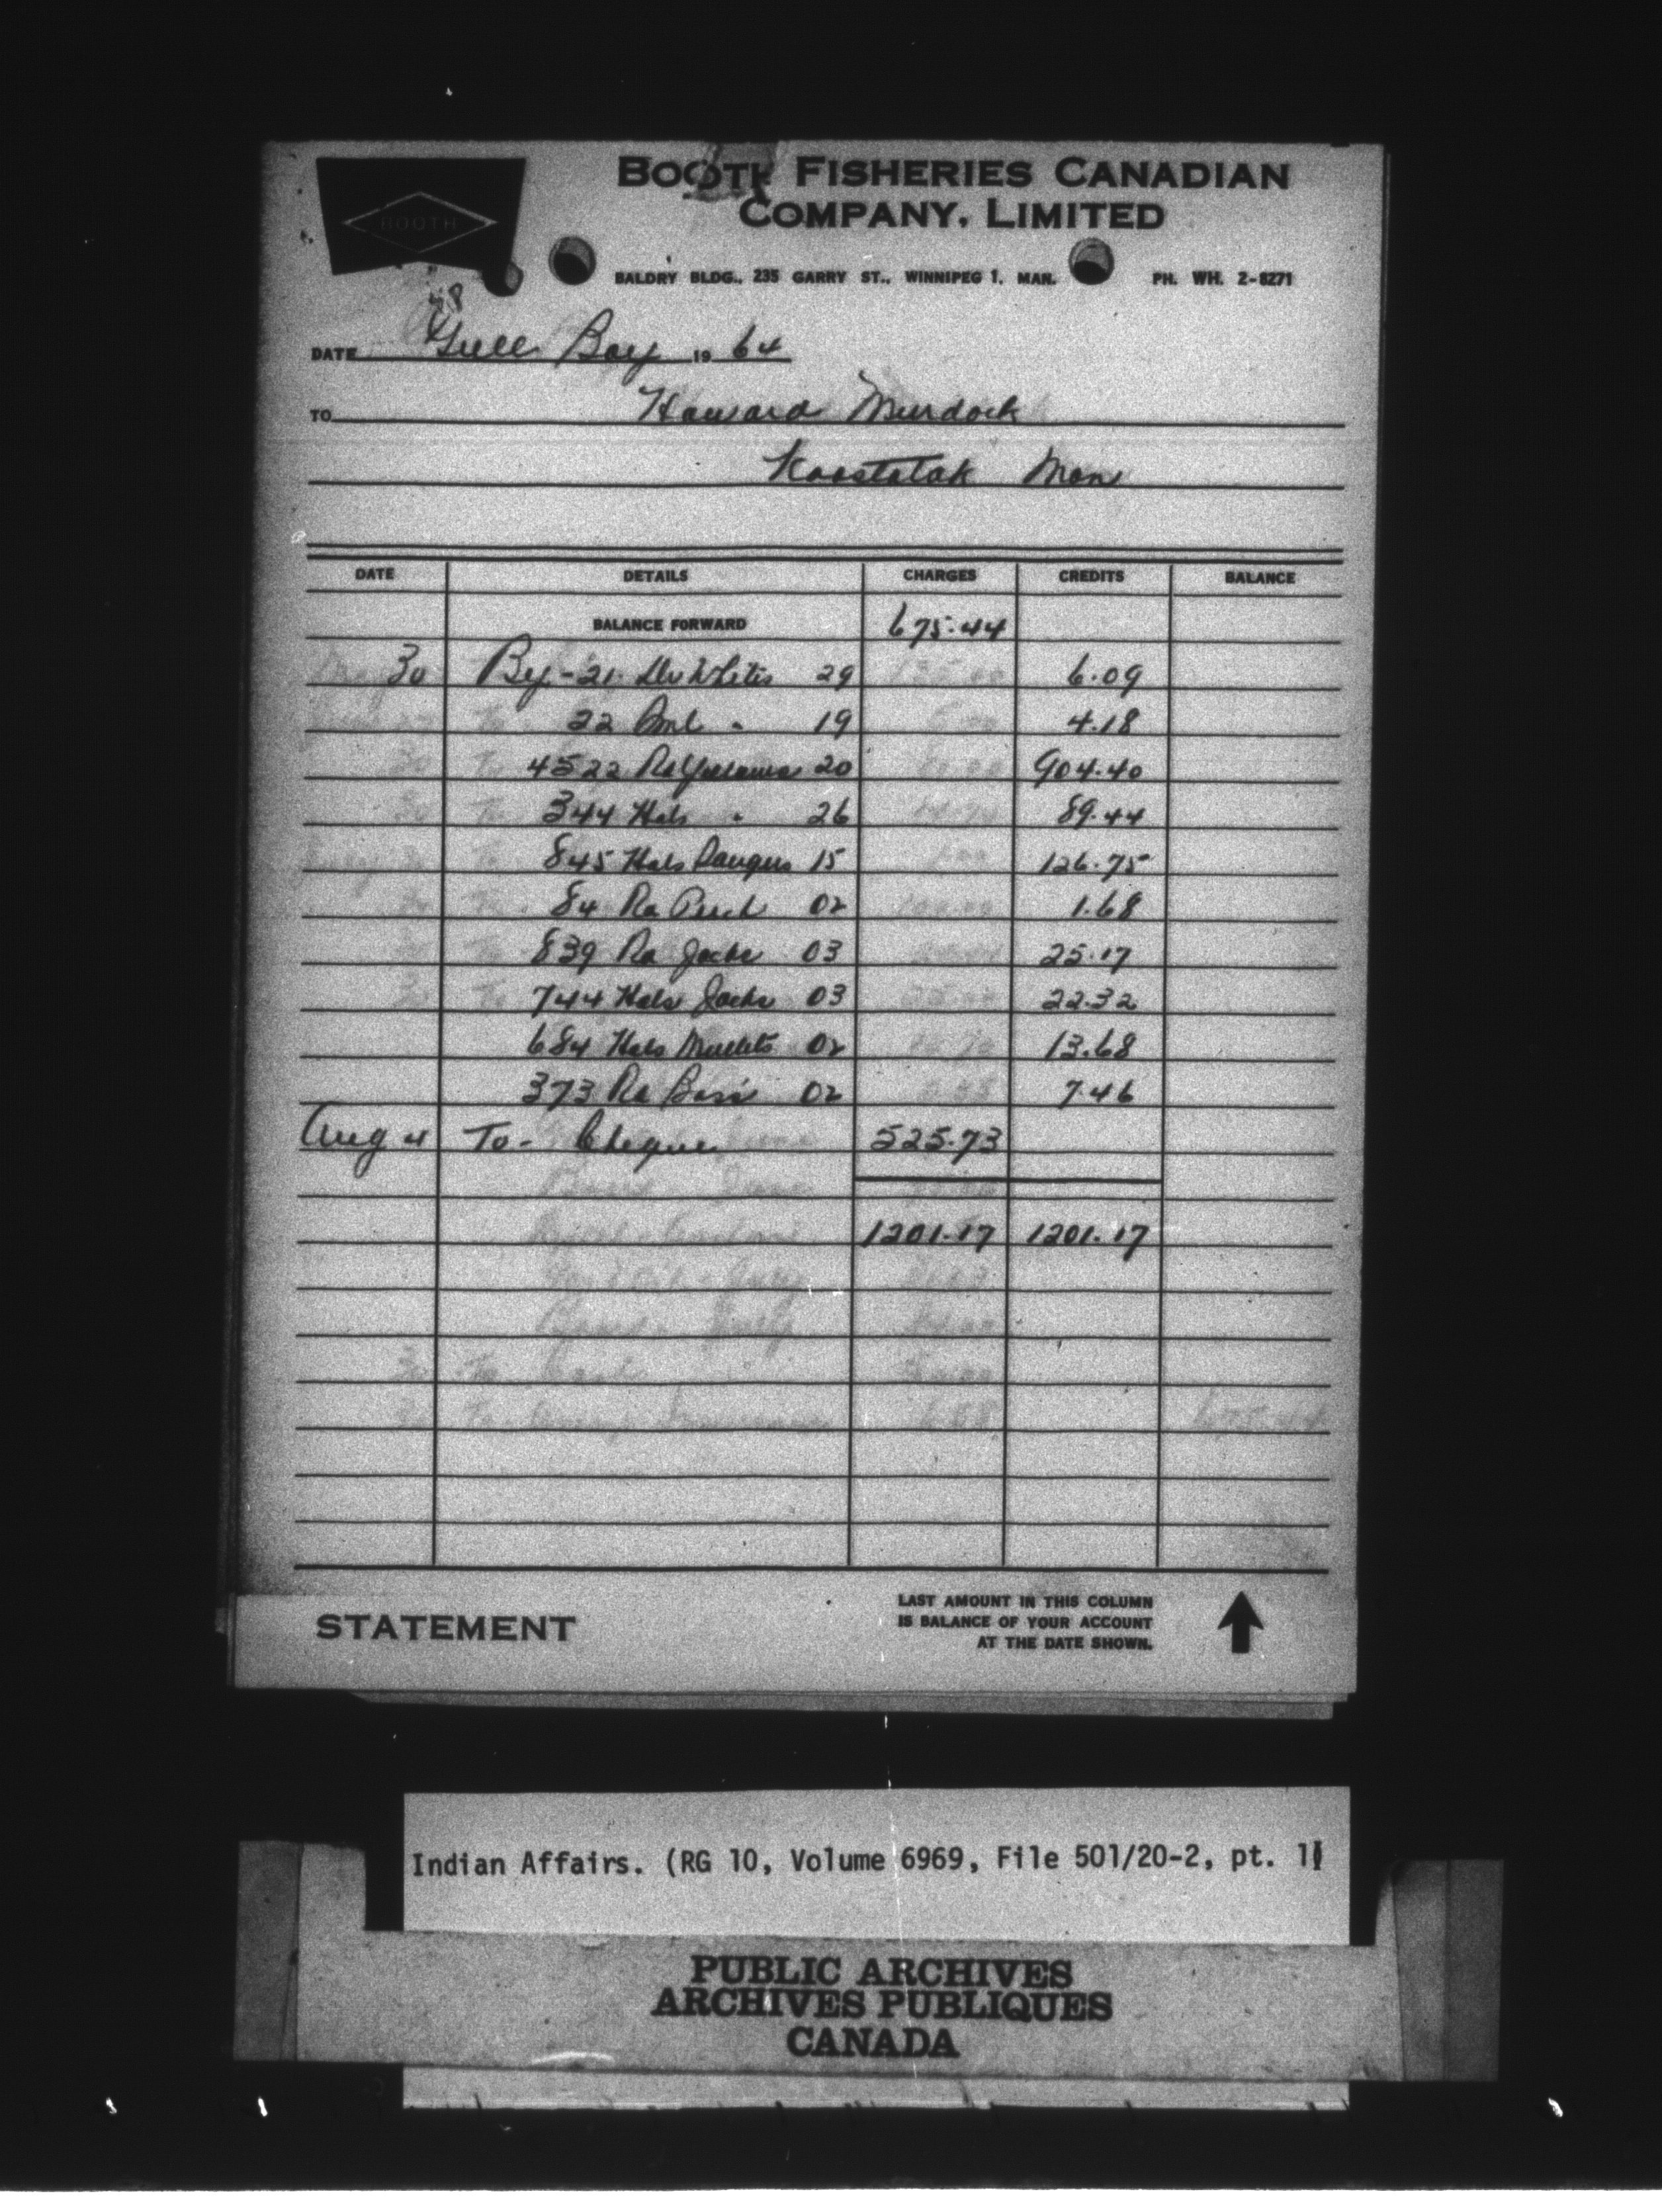 BOOTH FISHERIES CANADIAN
COMPANY, LIMITED
BOOTH
BALDRY BLDG., 235 GARRY ST., WINNIPEG 1, MAN. PH. WH. 2-8271
DATE Gull Bay 19 64
TO Howard Murdock
Koostatak Man
DATE DETAILS CHARGES CREDITS BALANCE
BALANCE FORWARD 675.44
30 By - 21 Whites 29 6.09
22 " 19 4.18
4522 Ra 20 904.40
344 Hds " 26 89.44
845 Hds Saugers 15 126.75
84 Ra Perch 02 1.68
839 Ra Jacks 03 25.17
744 Hds Jacks 03 22.32
684 Hds Mullets 02 13.68
373 Ra Bass 02 7.46
Aug 4 To - Cheque 525.73
1201.17 1201.17
STATEMENT
LAST AMOUNT IN THIS COLUMN
IS BALANCE OF YOUR ACCOUNT
AT THE DATE SHOWN.
Indian Affairs. (RG 10, Volume 6969, File 501/20-2, pt. 1)
PUBLIC ARCHIVES
ARCHIVES PUBLIQUES
CANADA